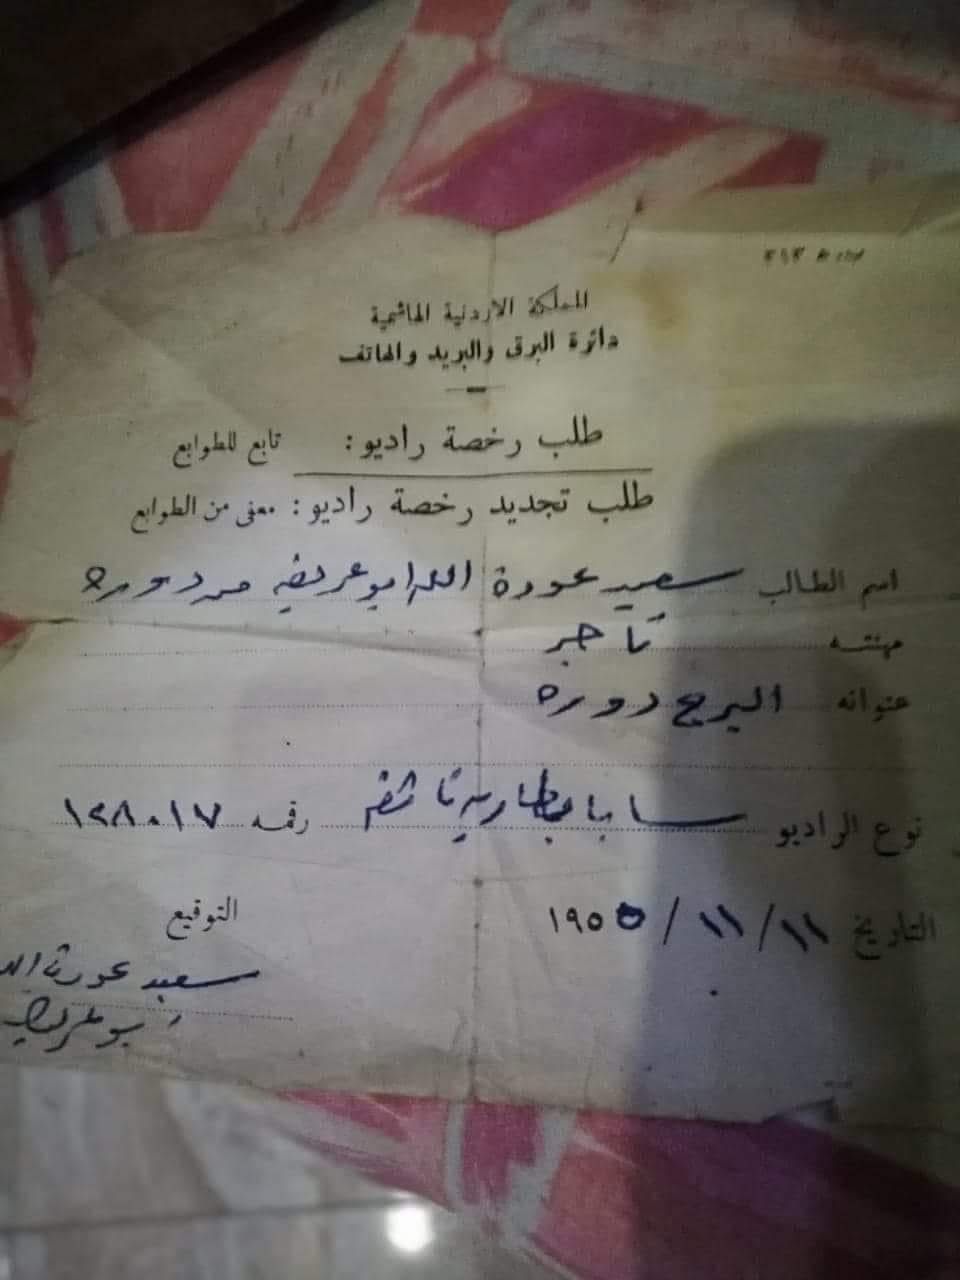 المملكة الاردنية الهاشمية
دائرة البرق والبريد والهاتف
طلب رخصة راديو : تابع للطوابع
طلب تجديد رخصة راديو : معفى من الطوابع
اسم الطالب سعيد عودة الله ابو عريضه من دوره
مهنته تاجر
عنوانه البرج دوره
نوع الراديو سابا بطاريه ناشف رقمه ١٢٨٠١٧
التاريخ ١١ / ١١ / ١٩٥٥
التوقيع
سعيد عودة الله